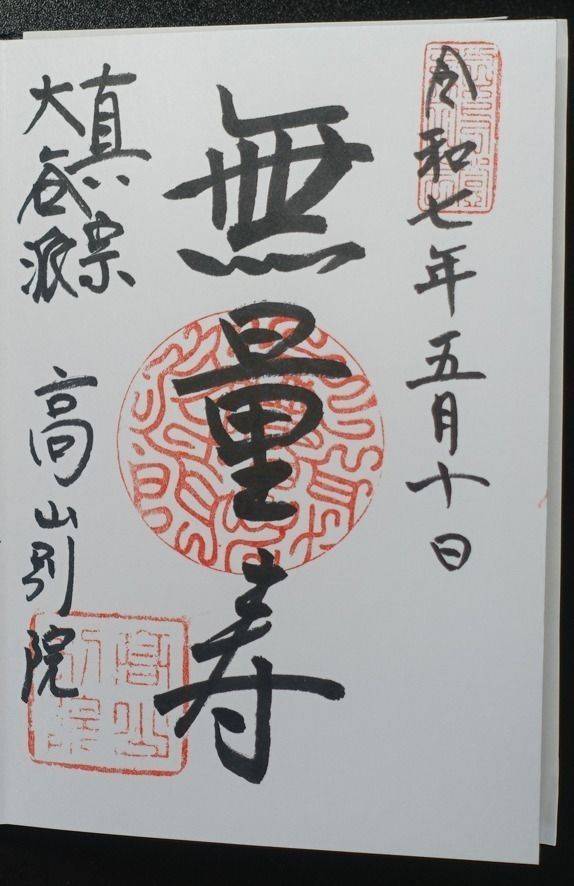 令和七年五月十日
無量寿
真宗
大谷派
高山別院